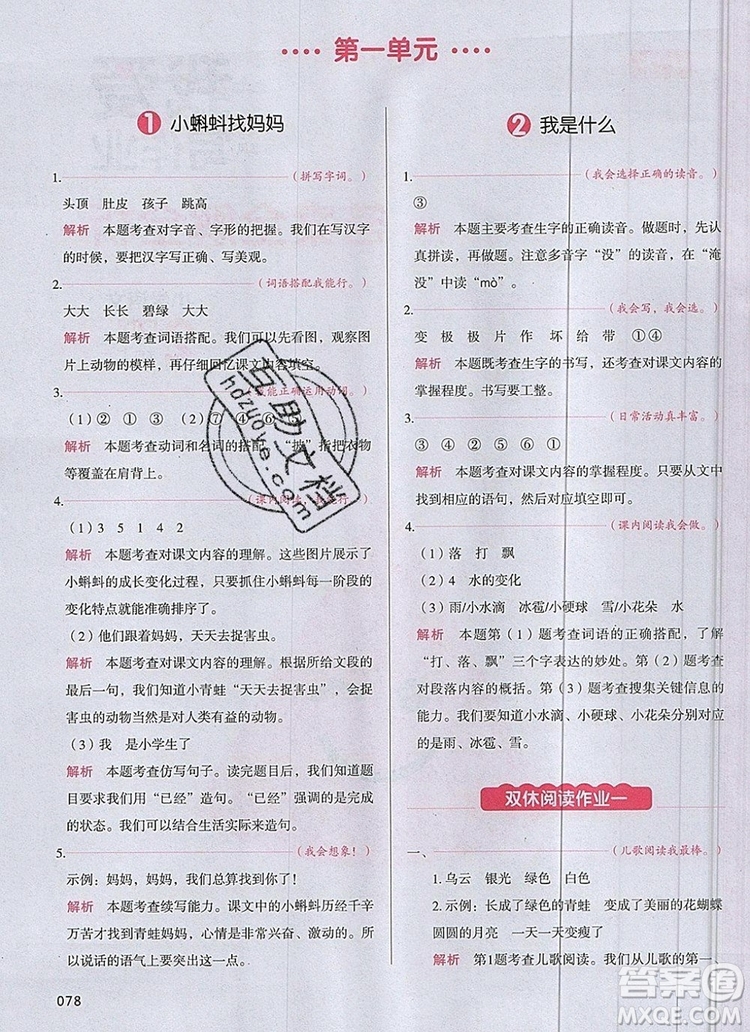 第一单元
1 小蝌蚪找妈妈
1.（拼写字词。）
头顶 肚皮 孩子 跳高
解析 本题考查对字音、字形的把握。我们在写汉字
的时候，要把汉字写正确、写美观。
2.（词语搭配我能行。）
大大 长长 碧绿 大大
解析 本题考查词语搭配。我们可以先看图，观察图
片上动物的模样，再仔细回忆课文内容填空。
3.（我能正确运用动词。）
（1）② ① ③ （2）⑦ ④ ⑥ ⑤
解析 本题考查动词和名词的搭配。“披”指把衣物
等覆盖在肩背上。
4.（课内阅读，我能行。）
（1）3 5 1 4 2
解析 本题考查对课文内容的理解。这些图片展示了
小蝌蚪的成长变化过程，只要抓住小蝌蚪每一阶段的
变化特点就能准确排序了。
（2）他们跟着妈妈，天天去捉害虫。
解析 本题考查对课文内容的理解。根据所给文段的
最后一句，我们知道小青蛙“天天去捉害虫”，捉害
虫的动物当然是对人类有益的动物。
（3）我 是小学生了
解析 本题考查仿写句子。读完题目后，我们知道本
题要用“已经”造句。“已经”强调的是完成
的状态。我们可以结合生活实际来造句。
5.（我会想象！）
示例：妈妈，妈妈，我们总算找到您了！
解析 本题考查续写能力。课文中的小蝌蚪历经千辛
万苦才找到青蛙妈妈，心情是非常兴奋、激动的。所
以说话的语气上要表现出激动的心情。
078
2 我是什么
1.（我会选择正确的读音。）
③
解析 本题主要考查生字的正确读音。做题时，先认
真拼读，再做选择。注意多音字“没”的读音，在“淹
没”中读“mò”。
2.（我会写，我会选。）
变 极 极 片 作 坏 给 带 ①④
解析 本题既考查生字的书写，还考查对课文内容的
掌握程度。书写要工整。
3.（日常活动真丰富。）
③ ④ ② ⑥ ⑤ ①
解析 本题考查对课文内容的掌握程度。只要从文中
找到相应的语句，然后对应填空即可。
4.（课内阅读我会做。）
（1）落 打 飘
（2）4 水的变化
（3）雨/小水滴 冰雹/小硬球 雪/小花朵 水
解析 本题第（1）题考查词语的正确搭配，了解
“打、落、飘”三个字表达的妙处。第（2）题考查
对段落内容的概括。第（3）题考查搜集关键信息的
能力。我们知道小水滴、小硬球、小花朵分别对应
的是雨、冰雹、雪。
双休阅读作业一
一、（儿歌阅读我最棒。）
1. 乌云 银光 绿色 白色
2. 示例：长成了绿色的青蛙 变成了美丽的花蝴蝶
圆圆的月亮 一天一天变白
解析 第1题考查儿歌阅读。我们从儿歌的第一、
互助文档
hdzuoye.com
答案圈
MXQE.COM